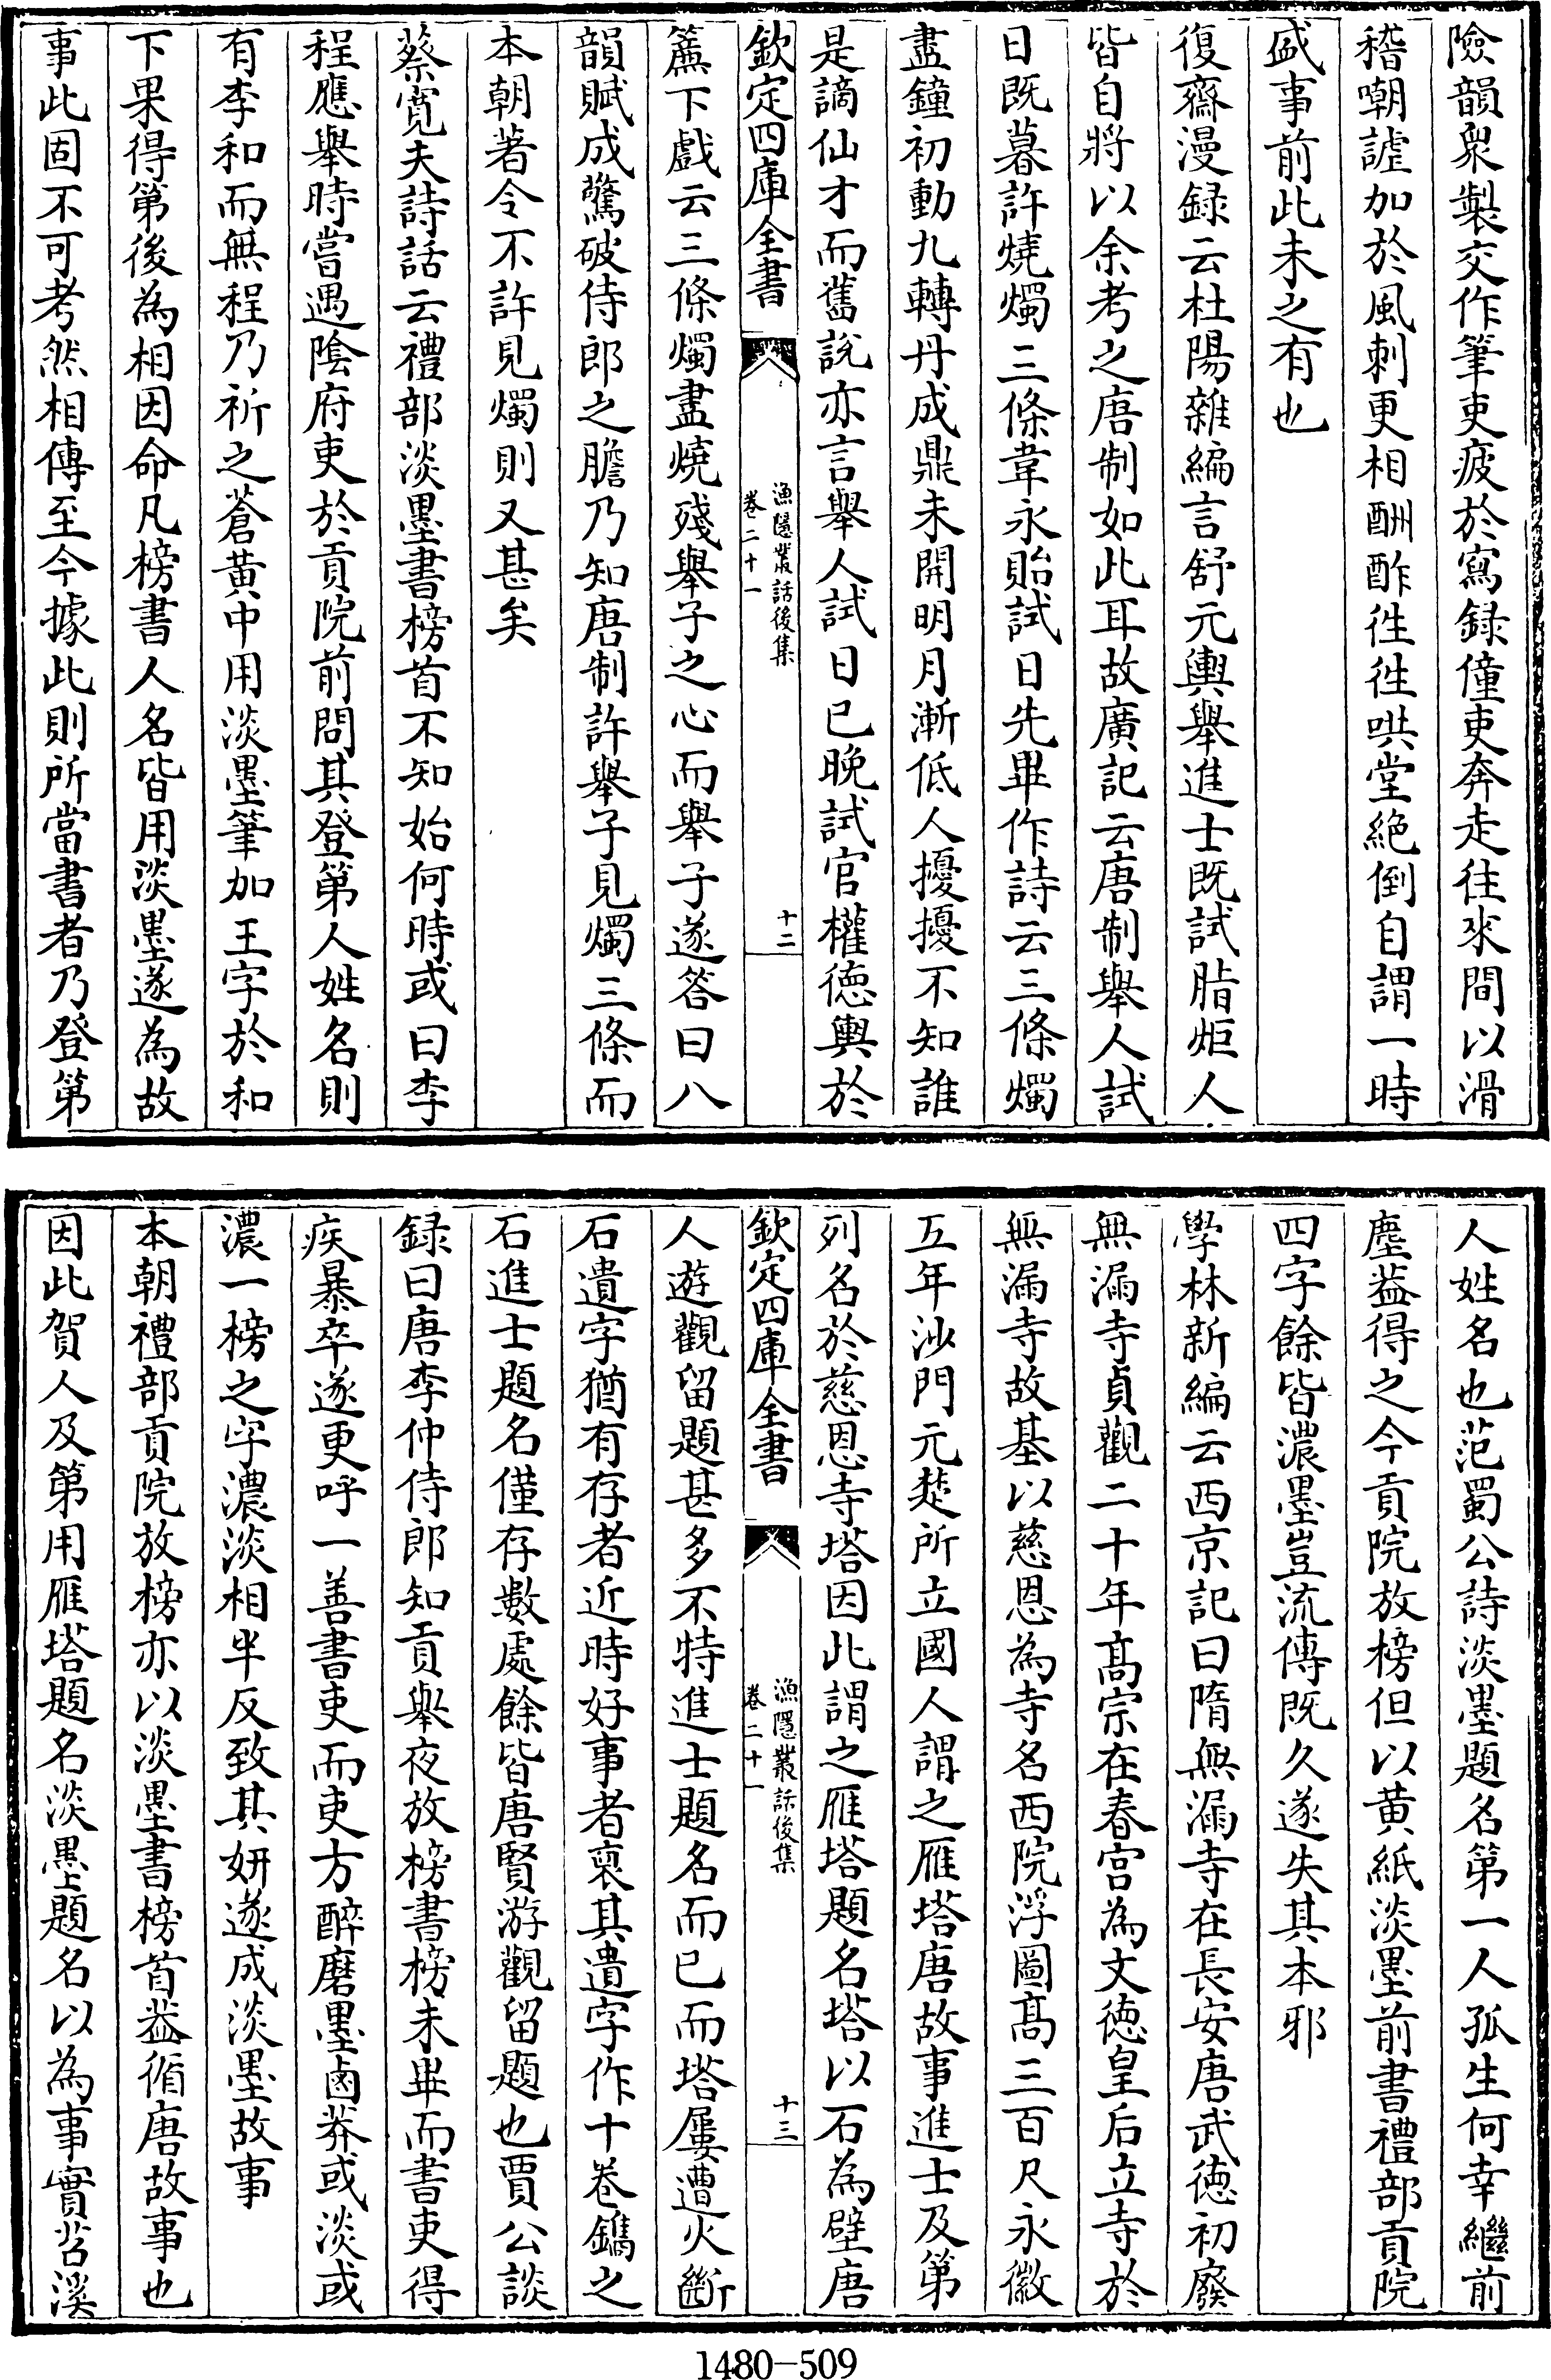 險韻衆製交作筆吏疲於寫録僮吏奔走往來間以滑
稽嘲謔加於風刺更相酬酢徃徃哄堂絶倒自謂一時
盛事前此未之有也
復齋漫録云杜陽雜編言舒元輿舉進士既試脂炬人
皆自將以余考之唐制如此耳故廣記云唐制舉人試
日既暮許燒燭三條韋永貽試日先畢作詩云三條燭
盡鐘初動九轉丹成鼎未開明月漸低人擾擾不知誰
是謫仙才而舊説亦言舉人試日已晚試官權德輿於
欽定四庫全書
漁隱叢話後集
卷二十一
十二
簾下戲云三條燭盡燒殘舉子之心而舉子遂答曰八
韻賦成驚破侍郎之膽乃知唐制許舉子見燭三條而
本朝著令不許見燭則又甚矣
蔡寛夫詩話云禮部淡墨書榜首不知始何時或曰李
程應舉時嘗遇陰府吏於貢院前問其登第人姓名則
有李和而無程乃祈之蒼黄中用淡墨筆加王字於和
下果得第後為相因命凡榜書人名皆用淡墨遂為故
事此固不可考然相傳至今據此則所當書者乃登第
人姓名也范蜀公詩淡墨題名第一人孤生何幸繼前
塵葢得之今貢院放榜但以黄紙淡墨前書禮部貢院
四字餘皆濃墨豈流傳既久遂失其本邪
學林新編云西京記曰隋無漏寺在長安唐武德初廢
無漏寺貞觀二十年髙宗在春宫為文德皇后立寺於
無漏寺故基以慈恩為寺名西院浮圖髙三百尺永徽
五年沙門元楚所立國人謂之雁塔唐故事進士及第
列名於慈恩寺塔因此謂之雁塔題名塔以石為壁唐
欽定四庫全書
漁隱叢話後集
卷二十一
十三
人遊觀留題甚多不特進士題名而已而塔屢遭火斷
石遺字猶有存者近時好事者裒其遺字作十卷鐫之
石進士題名僅存數處餘皆唐賢游觀留題也賈公談
録曰唐李仲侍郎知貢舉夜放榜書榜未畢而書吏得
疾暴卒遂更呼一善書吏而吏方醉磨墨鹵莽或淡或
濃一榜之字濃淡相半反致其妍遂成淡墨故事
本朝禮部貢院放榜亦以淡墨書榜首葢循唐故事也
因此賀人及第用雁塔題名淡墨題名以為事實苕溪
1480-509